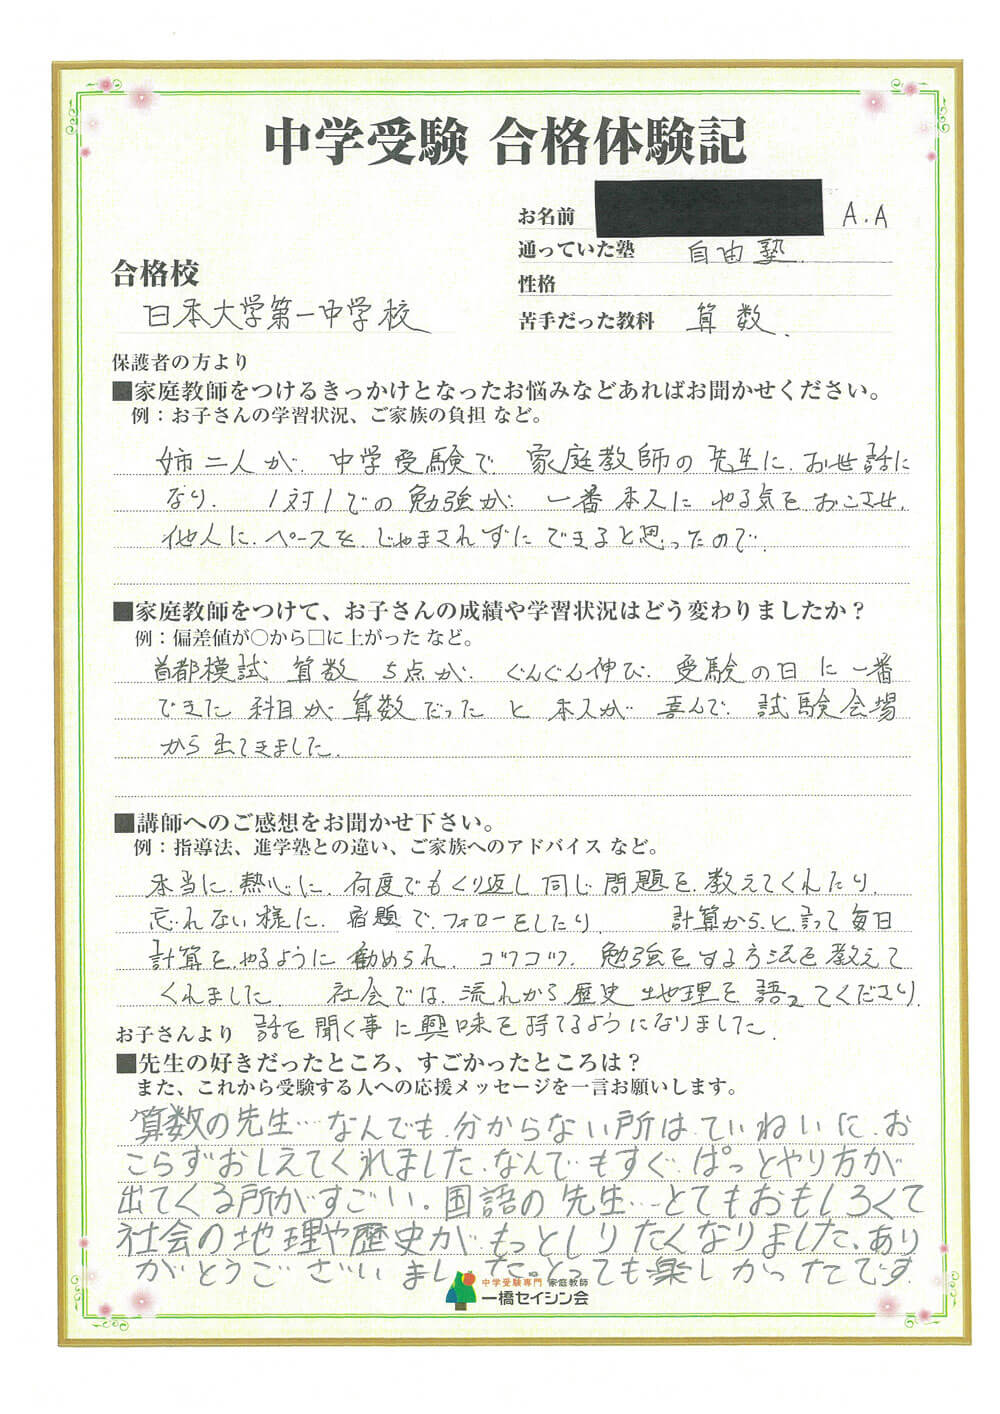 中学受験 合格体験記
お名前 A.A
通っていた塾 自由塾.
合格校
性格
日本大学第一中学校
苦手だった教科 算数.
保護者の方より
■家庭教師をつけるきっかけとなったお悩みなどあればお聞かせください。
例：お子さんの学習状況、ご家族の負担 など。
姉二人が、中学受験で、家庭教師の先生に、お世話に
なり、1対1での勉強が、一番本人にやる気をおこさせ、
他人に、ペースを、じゃまされずにできると思ったので、
■家庭教師をつけて、お子さんの成績や学習状況はどう変わりましたか？
例：偏差値が○から□に上がった など。
首都模試 算数 5点が、ぐんぐん伸び、受験の日に一番
できた科目が算数だったと本人が喜んで、試験会場
から出てきました.
■講師へのご感想をお聞かせ下さい。
例：指導法、進学塾との違い、ご家族へのアドバイス など。
本当に、熱心に、何度でもくり返し同じ問題を、教えてくれたり、
忘れない様に、宿題で、フォローをしたり、計算から、と、言って毎日
計算を、やるように勧められ、コツコツ、勉強をする方法を教えて
くれました. 社会では、流れから歴史、地理を語ってくださり、
お子さんより 話を聞く事に興味を持てるようになりました.
■先生の好きだったところ、すごかったところは？
また、これから受験する人への応援メッセージを一言お願いします。
算数の先生…なんでも、分からない所は、ていねいに、お
こらずおしえてくれました、なんでもすぐ、ぱっとやり方が
出てくる所がすごい。国語の先生…とてもおもしろくて
社会の地理や歴史が、もっとしりたくなりました、あり
がとうございました。とっても楽しかったです.
中学受験専門 家庭教師
一橋セイシン会